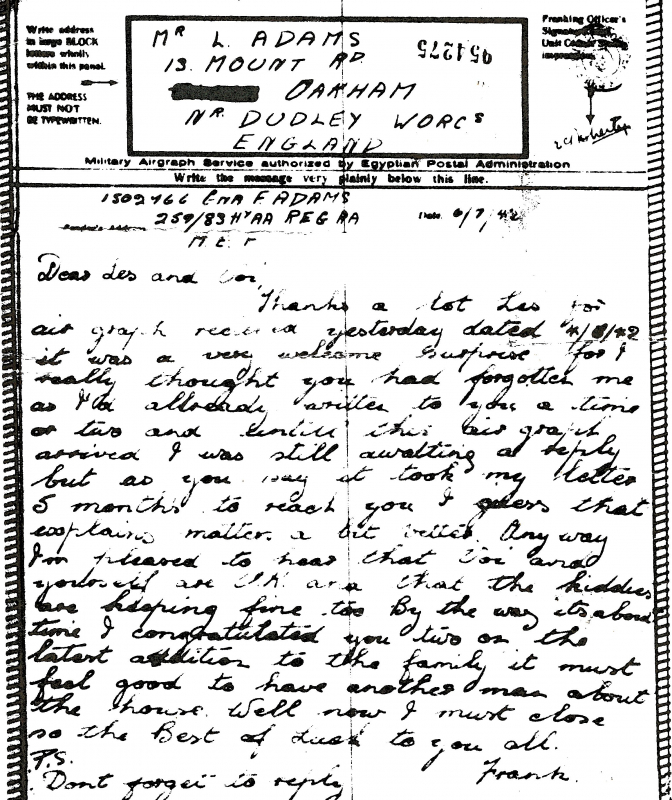 Write address
in large BLOCK
letters wholly
within this panel.
THE ADDRESS
MUST NOT
BE TYPEWRITTEN.
MR L. ADAMS
13. MOUNT RD
OAKHAM
NR. DUDLEY WORCS
ENGLAND
954275
Franking Officer's
Military Airgraph Service authorized by Egyptian Postal Administration
Write the message very plainly below this line.
1502466 F ADAMS
259/83 HY AA REG RA
M.E.F
Date. 6/7/42
Dear Les and Voi,
Thanks a lot Les for
air graph received yesterday dated
it was a very welcome surprise for I
really thought you had forgotten me
as I'd allready written to you a time
or two and untill this air graph
arrived I was still awaiting a reply
but as you say it took my letter
5 months to reach you I guess that
explains matters a bit better. Any way
I'm pleased to hear that Voi and
yourself are O.K. and that the kiddies
are keeping fine too By the way its about
time I congratulated you two on the
latest addition to the family it must
feel good to have another man about
the house. Well now I must close
so the Best of Luck to you all.
Frank.
P.S.
Dont forget to reply